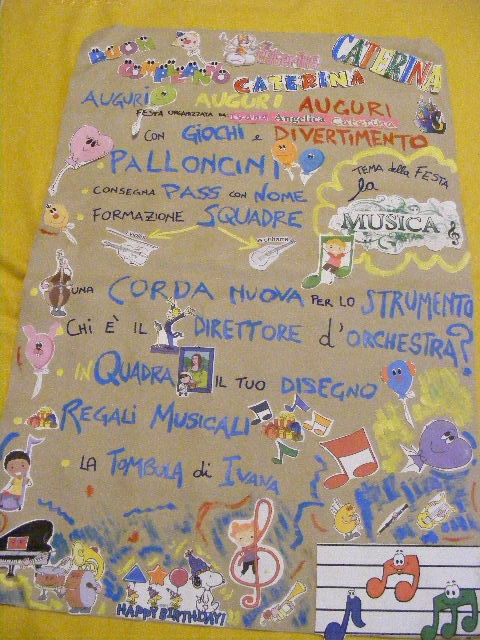 BUON
COMPLEANNO
CATERINA
CATERINA
AUGURI AUGURI AUGURI
FESTA ORGANIZZATA DA IVANA Angelica Caterina
CON GIOCHI e DIVERTIMENTO
PALLONCINI
CONSEGNA PASS CON NOME
FORMAZIONE SQUADRE
TEMA della FESTA
la
MUSICA
UNA CORDA NUOVA PER LO STRUMENTO
CHI È IL DIRETTORE d'ORCHESTRA?
INQUADRA IL TUO DISEGNO
REGALI MUSICALI
LA TOMBOLA di IVANA
HAPPY BIRTHDAY!